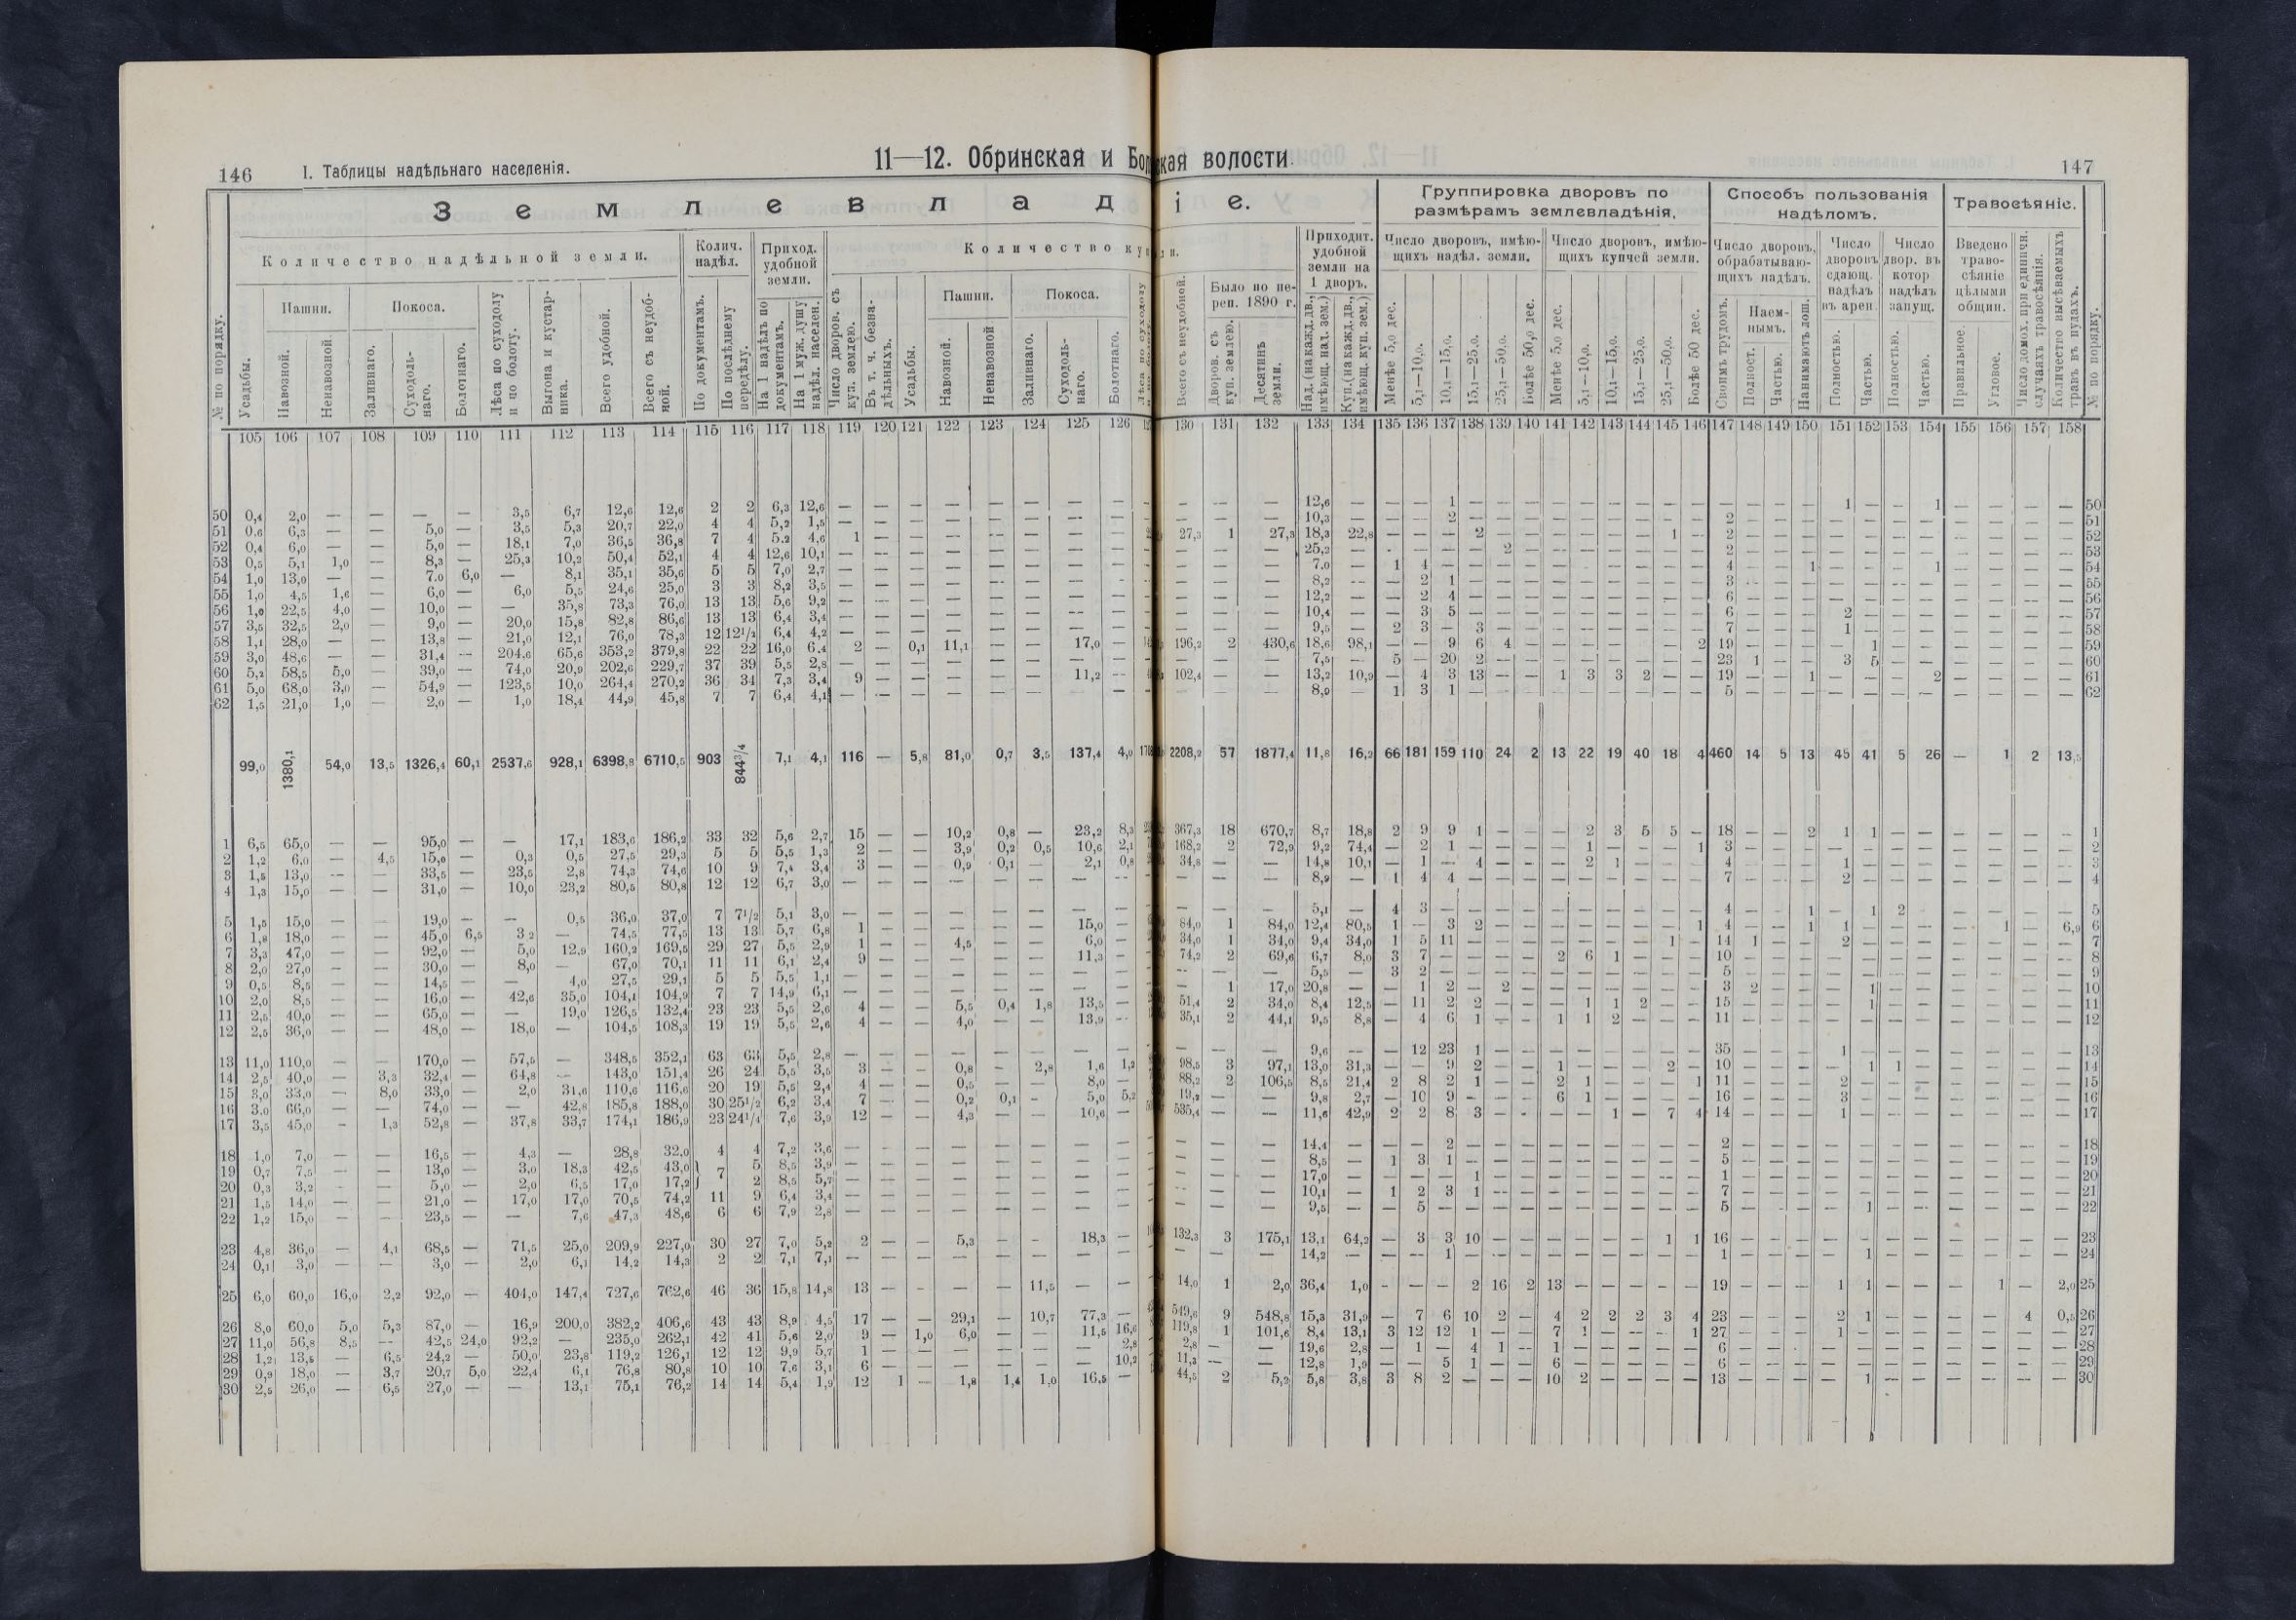 146 I. Таблицы надѣльнаго населенія. 11—12. Обринская и Бо ская волости. 147
Землевладѣніе.
Группировка дворовъ по размѣрамъ землевладѣнія.
Способъ пользованія надѣломъ.
Травосѣяніе.
Количество надѣльной земли.
Колич. надѣл.
Приход. удобной земли.
Количество
Приходит. удобной земли на 1 дворъ.
Число дворовъ, имѣющихъ надѣл. земли.
Число дворовъ, имѣющихъ купчей земли.
Число дворовъ, обрабатывающихъ надѣлъ.
Число дворовъ сдающ. надѣлъ въ арен.
Число двор. въ котор надѣлъ запущ.
Введено травосѣяніе цѣлыми общин.
№ по порядку. Усадьбы. Пашни. Навозной. Ненавозной. Покоса. Заливнаго. Суходольнаго. Болотнаго. Лѣса по суходолу и по болоту. Выгона и кустарника. Всего удобной. Всего съ неудобной.
По документамъ. По послѣднему передѣлу. На 1 надѣлъ по документамъ. На 1 муж. душу надѣл. населен.
Число дворов. съ куп. землею. Въ т. ч. безнадѣльныхъ. Усадьбы. Пашни. Навозной. Ненавозной Покоса. Заливнаго. Суходольнаго. Болотнаго.
Всего съ неудобной. Было по переп. 1890 г. Дворов. съ куп. землею. Десятинъ земли. Над. (на кажд. дв., имѣющ. над. зем.) Куп. (на кажд. дв., имѣющ. куп. зем.)
Менѣе 5,0 дес. 5,1—10,0. 10,1—15,0. 15,1—25,0. 25,1—50,0. Болѣе 50,0 дес. Менѣе 5,0 дес. 5,1—10,0. 10,1—15,0. 15,1—25,0. 25,1—50,0. Болѣе 50 дес.
Своимъ трудомъ. Наемнымъ. Полност. Частью. Нанимаютъ лош. Полностью. Частью. Полностью. Частью. Правильное. Угловое. Число домох. при единичн. случаяхъ травосѣянія. Количество высѣваемыхъ травъ въ пудахъ. № по порядку.
105 106 107 108 109 110 111 112 113 114 115 116 117 118 119 120 121 122 123 124 125 126 130 131 132 133 134 135 136 137 138 139 140 141 142 143 144 145 146 147 148 149 150 151 152 153 154 155 156 157 158
50 0,4 2,0 — — — — 3,5 6,7 12,6 12,6 2 2 6,3 12,6 — — — — — — — — — — — 12,6 — — — 1 — — — — — — — — — — — — — 1 — — 1 — — — — 50
51 0,6 6,3 — — 5,0 — 3,5 5,3 20,7 22,0 4 4 5,2 1,5 — — — — — — — — — — — 10,3 — — — 2 — — — — — — — — — 2 — — — — — — — — — — — 51
52 0,4 6,0 — — 5,0 — 18,1 7,0 36,5 36,8 7 4 5,2 4,6 1 — — — — — — — 27,3 1 27,3 18,3 22,8 — — — 2 — — — — — — 1 — 2 — — — — — — — — — — — 52
53 0,5 5,1 1,0 — 8,3 — 25,3 10,2 50,4 52,1 4 4 12,6 10,1 — — — — — — — — — — — 25,2 — — — — — 2 — — — — — — — 2 — — — — — — — — — — — 53
54 1,0 13,0 — — 7,0 6,0 — 8,1 35,1 35,6 5 5 7,0 2,7 — — — — — — — — — — — 7,0 — 1 4 — — — — — — — — — — 4 — — 1 — — — 1 — — — — 54
55 1,0 4,5 1,6 — 6,0 — 6,0 5,5 24,6 25,0 3 3 8,2 3,5 — — — — — — — — — — — 8,2 — — 2 1 — — — — — — — — — 3 — — — — — — — — — — — 55
56 1,0 22,5 4,0 — 10,0 — — 35,8 73,3 76,0 13 13 5,6 9,2 — — — — — — — — — — — 12,2 — — 2 4 — — — — — — — — — 6 — — — — — — — — — — — 56
57 3,5 32,5 2,0 — 9,0 — 20,0 15,8 82,8 86,6 13 13 6,4 3,4 — — — — — — — — — — — 10,4 — — 3 5 — — — — — — — — — 6 — — — 2 — — — — — — — 57
58 1,1 28,0 — — 13,8 — 21,0 12,1 76,0 78,3 12 12½ 6,4 4,2 — — — — — — — — — — — 9,5 — 2 3 — 3 — — — — — — — — 7 — — — 1 — — — — — — — 58
59 3,0 48,6 — — 31,4 — 204,6 65,6 353,2 379,8 22 22 16,0 6,4 2 — 0,1 11,1 — — 17,0 — 196,2 2 430,6 18,6 98,1 — — 9 6 4 — — — — — — 2 19 — — — — 1 — — — — — — 59
60 5,2 58,5 5,0 — 39,0 — 74,0 20,9 202,6 229,7 37 39 5,5 2,8 — — — — — — — — — — — 7,5 — 5 — 20 2 — — — — — — — — 23 1 — — 3 5 — — — — — — 60
61 5,0 68,0 3,0 — 54,9 — 123,5 10,0 264,4 270,2 36 34 7,3 3,4 9 — — — — — 11,2 — 102,4 — — 13,2 10,9 — 4 3 13 — — 1 3 3 2 — — 19 — — 1 — — — 2 — — — — 61
62 1,5 21,0 1,0 — 2,0 — 1,0 18,4 44,9 45,8 7 7 6,4 4,1 — — — — — — — — — — — 8,9 — 1 3 1 — — — — — — — — — 5 — — — — — — — — — — — 62
99,0 1380,1 54,0 13,5 1326,4 60,1 2537,6 928,1 6398,8 6710,5 903 844¾ 7,1 4,1 116 — 5,8 81,0 0,7 3,5 137,4 4,0 2208,2 57 1877,4 11,8 16,2 66 181 159 110 24 2 13 22 19 40 18 4 460 14 5 13 45 41 5 26 — 1 2 13,5
1 6,5 65,0 — — 95,0 — — 17,1 183,6 186,2 33 32 5,6 2,7 15 — — 10,2 0,8 — 23,2 8,3 367,3 18 670,7 8,7 18,8 2 9 9 1 — — — 2 3 5 5 — 18 — — 2 1 1 — — — — — — 1
2 1,2 6,0 — 4,5 15,0 — 0,3 0,5 27,5 29,3 5 5 5,5 1,3 2 — — 3,9 0,2 0,5 10,6 2,1 168,2 2 72,9 9,2 74,4 — 2 1 — — — — 1 — — — 1 3 — — — — — — — — — — — 2
3 1,5 13,0 — — 33,5 — 23,5 2,8 74,3 74,6 10 9 7,4 3,4 3 — — 0,9 0,1 — 2,1 0,8 34,8 — — 14,8 10,1 — 1 — 4 — — — 2 1 — — — 4 — — — 1 — — — — — — — 3
4 1,3 15,0 — — 31,0 — 10,0 23,2 80,5 80,8 12 12 6,7 3,0 — — — — — — — — — — — 8,9 — 1 4 4 — — — — — — — — — 7 — — — 2 — — — — — — — 4
5 1,5 15,0 — — 19,0 — — 0,5 36,0 37,0 7 7½ 5,1 3,0 — — — — — — — — — — — 5,1 — 4 3 — — — — — — — — — — 4 — — 1 — 1 2 — — — — — 5
6 1,8 18,0 — — 45,0 6,5 3 2 — 74,5 77,5 13 13 5,7 6,8 1 — — — — — 15,0 — 84,0 1 84,0 12,4 80,5 1 — 3 2 — — — — — — — 1 4 — — 1 1 — — — — 1 — 6,9 6
7 3,3 47,0 — — 92,0 — 5,0 12,9 160,2 169,5 29 27 5,5 2,9 1 — — 4,5 — — 6,0 — 34,0 1 34,0 9,4 34,0 1 5 11 — — — — — — — 1 — 14 1 — — 2 — — — — — — — 7
8 2,0 27,0 — — 30,0 — 8,0 — 67,0 70,1 11 11 6,1 2,4 9 — — — — — 11,3 — 74,2 2 69,6 6,7 8,0 3 7 — — — — 2 6 1 — — — 10 — — — — — — — — — — — 8
9 0,5 8,5 — — 14,5 — — 4,0 27,5 29,1 5 5 5,5 1,1 — — — — — — — — — — — 5,5 — 3 2 — — — — — — — — — — 5 — — — — — — — — — — — 9
10 2,0 8,5 — — 16,0 — 42,6 35,0 104,1 104,9 7 7 14,9 6,1 — — — — — — — — — 1 17,0 20,8 — — 1 2 — 2 — — — — — — — 3 2 — — — 1 — — — — — — 10
11 2,5 40,0 — — 65,0 — — 19,0 126,5 132,4 23 23 5,5 2,6 4 — — 5,5 0,4 1,8 13,5 — 51,4 2 34,0 8,4 12,5 — 11 2 2 — — — 1 1 2 — — 15 — — — — 1 — — — — — — 11
12 2,5 36,0 — — 48,0 — 18,0 — 104,5 108,3 19 19 5,5 2,6 4 — — 4,0 — — 13,9 — 35,1 2 44,1 9,5 8,8 — 4 6 1 — — 1 1 2 — — — 11 — — — — — — — — — — — 12
13 11,0 110,0 — — 170,0 — 57,5 — 348,5 352,1 63 63 5,5 2,8 — — — — — — 1,6 1,2 — — — 9,6 — — 12 23 1 — — — — — — — — 35 — — — 1 — — — — — — — 13
14 2,5 40,0 — 3,3 32,4 — 64,8 — 143,0 151,4 26 24 5,5 3,5 3 — — 0,8 — 2,8 1,6 1,2 98,5 3 97,1 13,0 31,3 — — 9 2 — — 1 — — — 2 — 10 — — — — 1 1 — — — — — 14
15 3,0 33,0 — 8,0 33,0 — 2,0 31,6 110,6 116,6 20 19 5,5 2,4 4 — — 0,5 — — 8,0 — 88,2 2 106,5 8,5 21,4 2 8 2 1 — — 2 1 — — — 1 11 — — — 2 — — — — — — — 15
16 3,0 66,0 — — 74,0 — — 42,8 185,8 188,0 30 25½ 6,2 3,4 7 — — 0,2 0,1 — 5,0 5,2 19,2 — — 9,8 2,7 — 10 9 — — — 6 1 — — — — 16 — — — 3 — — — — — — — 16
17 3,5 45,0 — 1,3 52,8 — 37,8 33,7 174,1 186,9 23 24¼ 7,6 3,9 12 — — 4,3 — — 10,6 — 535,4 — — 11,6 42,9 2 2 8 3 — — — — 1 — 7 4 14 — — — 1 — — — — — — — 17
18 1,0 7,0 — — 16,5 — 4,3 — 28,8 32,0 4 4 7,2 3,6 — — — — — — — — — — — 14,4 — — — 2 — — — — — — — — — 2 — — — — — — — — — — — 18
19 0,7 7,5 — — 13,0 — 3,0 18,3 42,5 43,0 7 5 8,5 3,9 — — — — — — — — — — — 8,5 — 1 3 1 — — — — — — — — — 5 — — — — — — — — — — — 19
20 0,3 3,2 — — 5,0 — 2,0 6,5 17,0 17,2 2 8,5 5,7 — — — — — — — — — — — 17,0 — — — — 1 — — — — — — — — 1 — — — — — — — — — — — 20
21 1,5 14,0 — — 21,0 — 17,0 17,0 70,5 74,2 11 9 6,4 3,4 — — — — — — — — — — — 10,1 — 1 2 3 1 — — — — — — — — 7 — — — — — — — — — — — 21
22 1,2 15,0 — — 23,5 — — 7,6 47,3 48,6 6 6 7,9 2,8 — — — — — — — — — — — 9,5 — — 5 — — — — — — — — — — 5 — — — — 1 — — — — — — 22
23 4,8 36,0 — 4,1 68,5 — 71,5 25,0 209,9 227,0 30 27 7,0 5,2 2 — — 5,3 — — 18,3 — 132,3 3 175,1 13,1 64,2 — 3 3 10 — — — — — — 1 1 16 — — — — — — — — — — — 23
24 0,1 3,0 — — 3,0 — 2,0 6,1 14,2 14,3 2 2 7,1 7,1 — — — — — — — — — — — 14,2 — — — 1 — — — — — — — — — 1 — — — — 1 — — — — — — 24
25 6,0 60,0 16,0 2,2 92,0 — 404,0 147,4 727,6 762,6 46 36 15,8 14,8 13 — — — — 11,5 — — 14,0 1 2,0 36,4 1,0 — — — 2 16 2 13 — — — — — 19 — — — 1 1 — — — 1 — 2,0 25
26 8,0 60,0 5,0 5,3 87,0 — 16,9 200,0 382,2 406,6 43 43 8,9 4,5 17 — — 29,1 — 10,7 77,3 — 549,6 9 548,8 15,3 31,9 — 7 6 10 2 — 4 2 2 2 3 4 23 — — — 2 1 — — — — 4 0,5 26
27 11,0 56,8 8,5 — 42,5 24,0 92,2 — 235,0 262,1 42 41 5,6 2,0 9 — 1,0 6,0 — — 11,5 16,6 119,8 1 101,6 8,4 13,1 3 12 12 1 — — 7 1 — — — 1 27 — — — 1 — — — — — — — 27
28 1,2 13,5 — 6,5 24,2 — 50,0 23,8 119,2 126,1 12 12 9,9 5,7 1 — — — — — — 2,8 2,8 — — 19,6 2,8 — 1 — 4 1 — 1 — — — — — 6 — — — — — — — — — — — 28
29 0,9 18,0 — 3,7 20,7 5,0 22,4 6,1 76,8 80,8 10 10 7,6 3,1 6 — — — — — — 10,2 11,3 — — 12,8 1,9 — — 5 1 — — 6 — — — — — 6 — — — — — — — — — — — 29
30 2,5 26,0 — 6,5 27,0 — — 13,1 75,1 76,2 14 14 5,4 1,9 12 1 — 1,8 1,4 1,0 16,5 — 44,5 2 5,2 5,8 3,8 3 8 2 — — — 10 2 — — — — 13 — — — — 1 — — — — — — 30